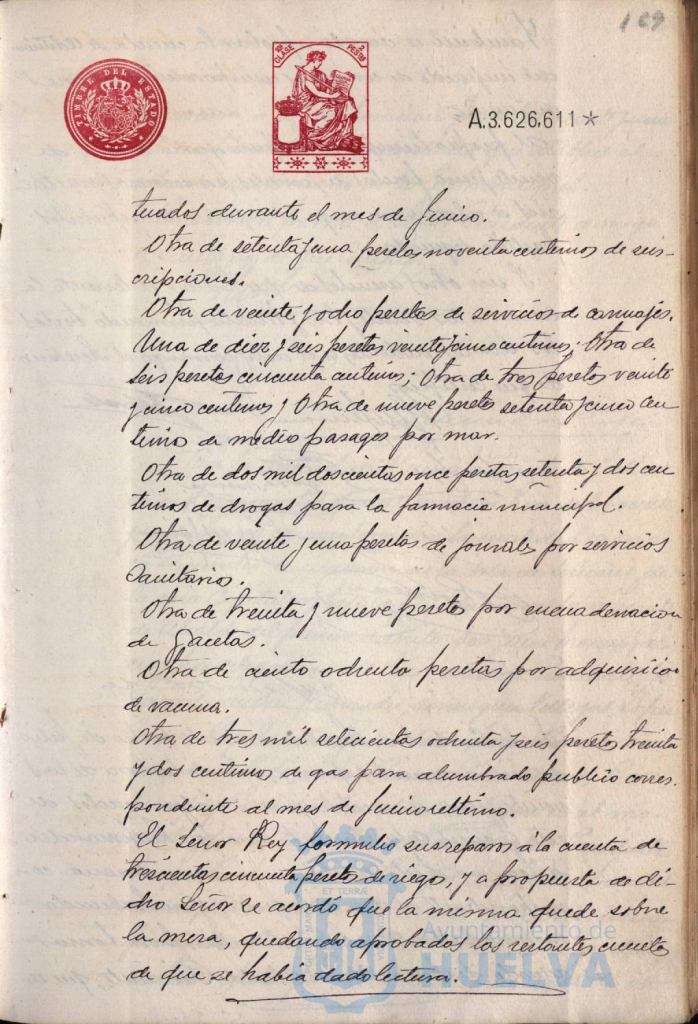 169
TIMBRE DEL ESTADO
10ª CLASE 2 PESETAS
A.3.626,611*
tuados durante el mes de Junio.
Otra de setenta y una pesetas noventa centimos de sus-
cripciones.
Otra de veinte y ocho pesetas de servicios de carruajes.
Una de diez y seis pesetas veinte y cinco centimos; Otra de
seis pesetas cincuenta centimos; Otra de tres pesetas veinte
y cinco centimos y Otra de nueve pesetas setenta y cinco cen-
timos de medios pasages por mar.
Otra de dos mil doscientas once pesetas, setenta y dos cen
timos de drogas para la farmacia municipal.
Otra de veinte y una pesetas de jornales por servicios
Sanitarios.
Otra de treinta y nueve pesetas por encuadernacion
de Gacetas.
Otra de ciento ochenta pesetas por adquisicion
de vacuna.
Otra de tres mil setecientas ochenta y seis pesetas treinta
y dos centimos de gas para alumbrado publico corres-
pondiente al mes de Junio ultimo.
El Señor Rey formulo sus reparos á la cuenta de
trescientas cincuenta pesetas de riegos, y a propuesta de di-
cho Señor se acordó que la misma quede sobre
la mesa, quedando aprobadas las restantes cuentas
de que se habia dado lectura.
Ayuntamiento de
HUELVA